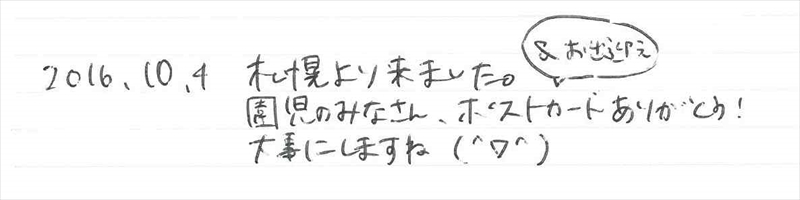 2016、10、4 札幌より来ました。
& お出迎え
園児のみなさん、ポストカードありがとう!
大事にしますね (^▽^)